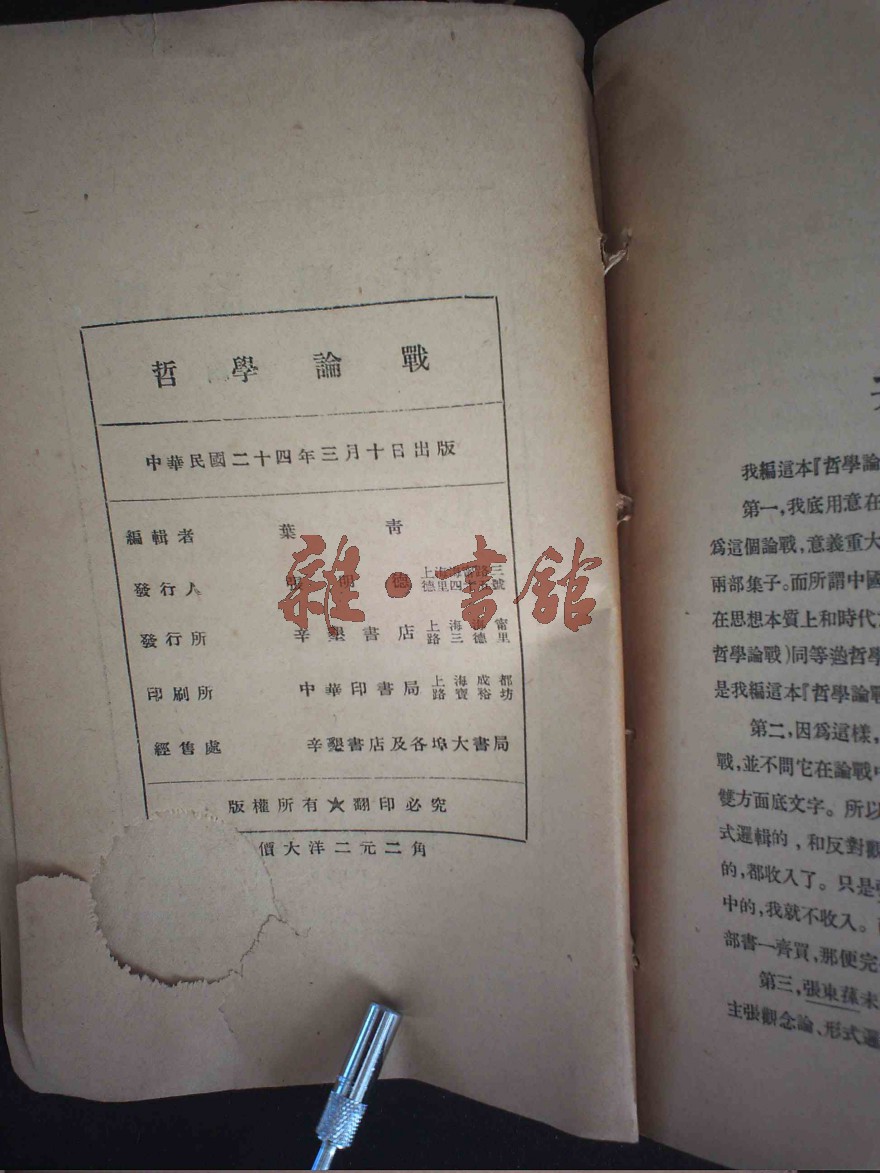 哲學論戰
中華民國二十四年三月十日出版
編輯者 葉青
發行人 明德 上海海甯路三德里四十五號
發行所 辛墾書店 上海海甯路三德里
印刷所 中華印書局 上海成都路寶裕坊
經售處 辛墾書店及各埠大書局
版權所有★翻印必究
價大洋二元二角
雜·書館
我編這本『哲學論
第一，我底用意在
爲這個論戰，意義重大
兩部集子。而所謂中國
在思想本質上和時代
哲學論戰）同等過哲學
是我編這本『哲學論戰
第二，因爲這樣，
戰，並不問它在論戰中
雙方面底文字。所以
式邏輯的，和反對觀
的，都收入了。只是
中的，我就不收入。
部書一齊買，那便完
第三，張東蓀未
主張觀念論、形式邏